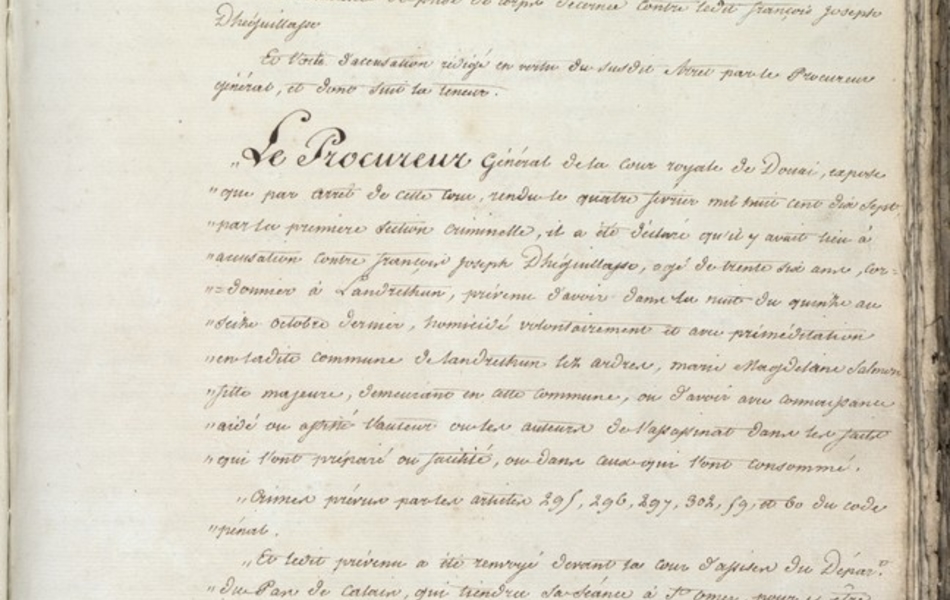 de prise de corps décernée contre ledit françois Joseph
Dhéguillage
Et l'acte d'accusation rédigé en vertu du susdit Arrêt par le Procureur
général, et dont suit la teneur.
„Le Procureur Général de la cour royale de Douai, expose
"que par arrêt de cette Cour, rendu le quatre février mil huit cent dix sept,
"par la première section criminelle, il a été déclaré qu'il y avait lieu à
"accusation contre françois Joseph Dhéguillage, agé de trente six ans, cor=
"=donnier à Landrethun, prévenu d'avoir dans la nuit du quinze au
"seize octobre dernier, homicidé volontairement et avec préméditation
"en ladite commune de landrethun lez ardres, marie Magdelaine Salmon
"fille majeure, demeurant en cette commune, ou d'avoir avec connaissance
"aidé ou assisté l'auteur ou les auteurs de l'assassinat dans les faits
"qui l'ont préparé ou facilité, ou dans ceux qui l'ont consommé.
„Crimes prévus par les articles 295, 296, 297, 302, 59, et 60 du code
"pénal.
„Et ledit prévenu a été renvoyé devant la cour d'assises du Dépar.t
"du Pas de Calais, qui tiendra sa séance à St. Omer pour y être